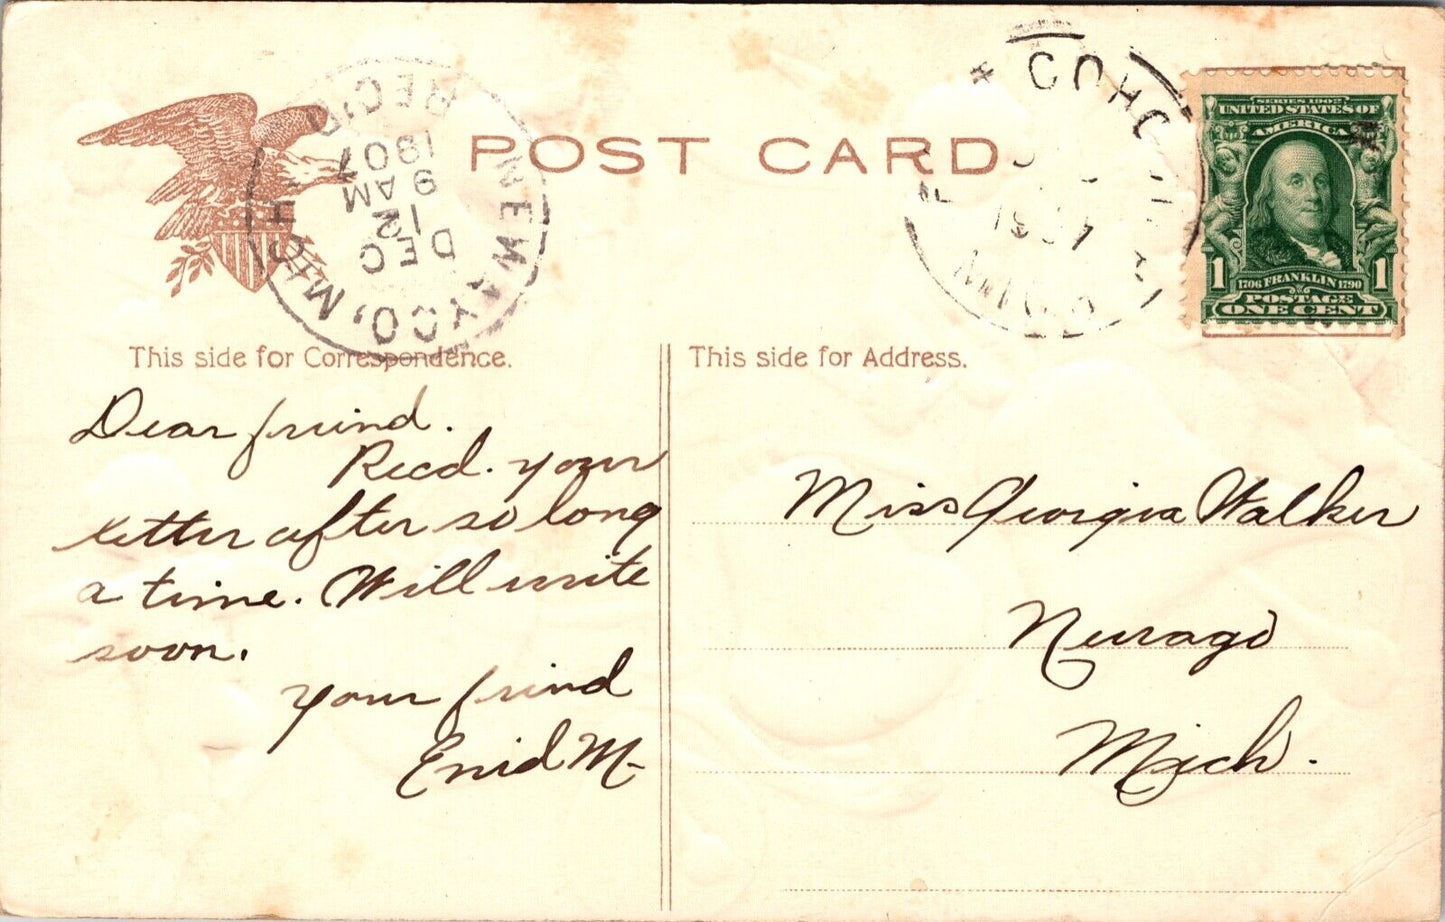 POST CARD
REC'D.
1907
9 AM
12
DEC
NEWAYGO, MICH
COHO
1907
MINN
SERIES 1902
UNITED STATES OF
AMERICA
1 1706 FRANKLIN 1790 1
POSTAGE
ONE CENT
This side for Correspondence.
Dear friend.
Recd. your
letter after so long
a time. Will write
soon.
your friend
Enid M-
This side for Address.
Miss Georgia Walker
Newago
Mich.